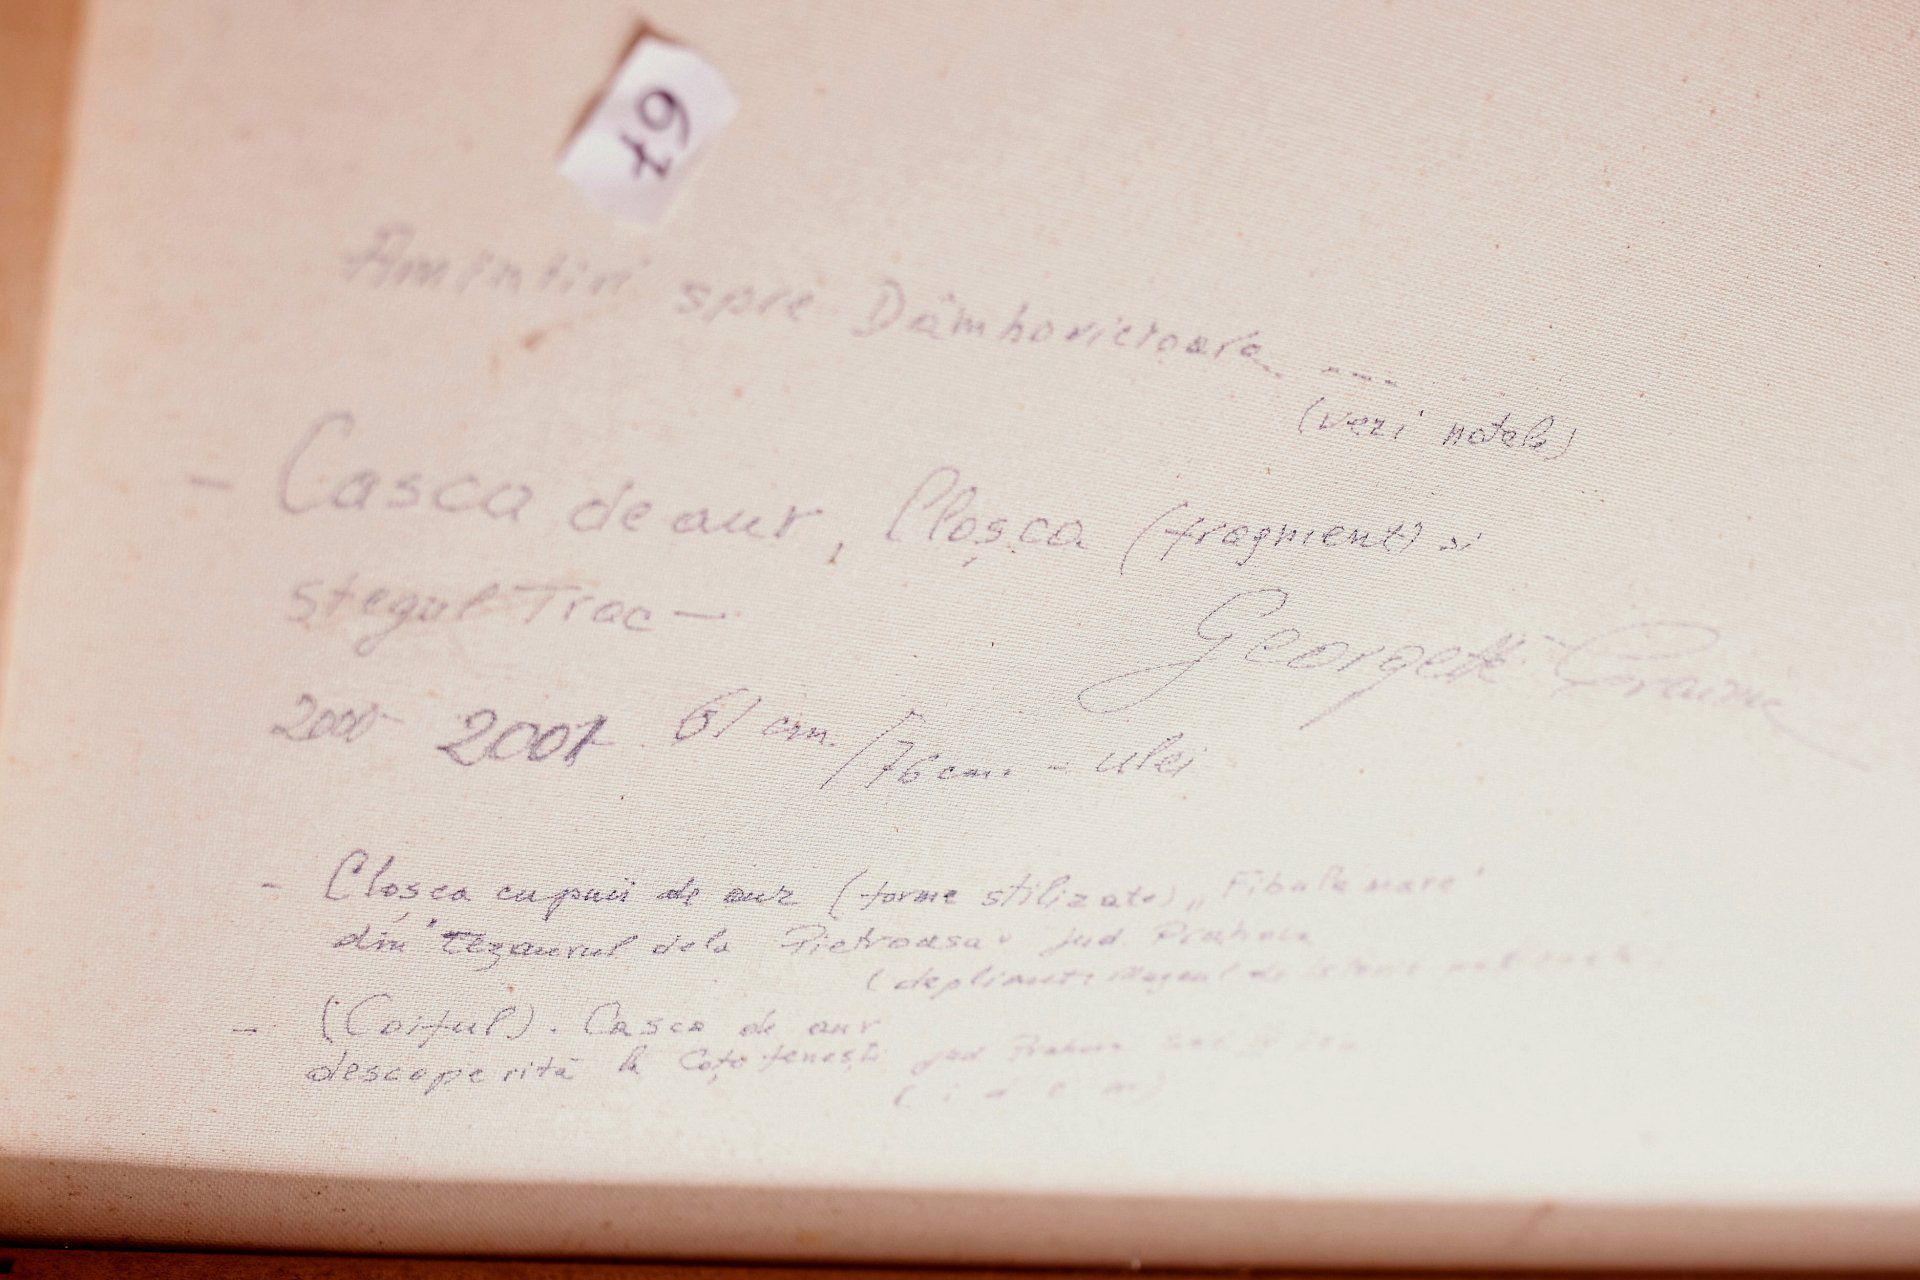 67
Amintiri spre Dâmbovicioara ---
(vezi notele)
- Casca de aur, Cloșca (fragment) și
stegul Trac -
Georgeta
2000 2001 61 cm. / 76 cm. - ulei
- Cloșca cu puii de aur (forme stilizate) „Fibula mare"
din "Tezaurul dela Pietroasa" jud. Prahova
(depliant: Muzeul de istorie națională)
- (Coiful). Casca de aur
descoperită la Coțofenești jud Prahova
(idem)